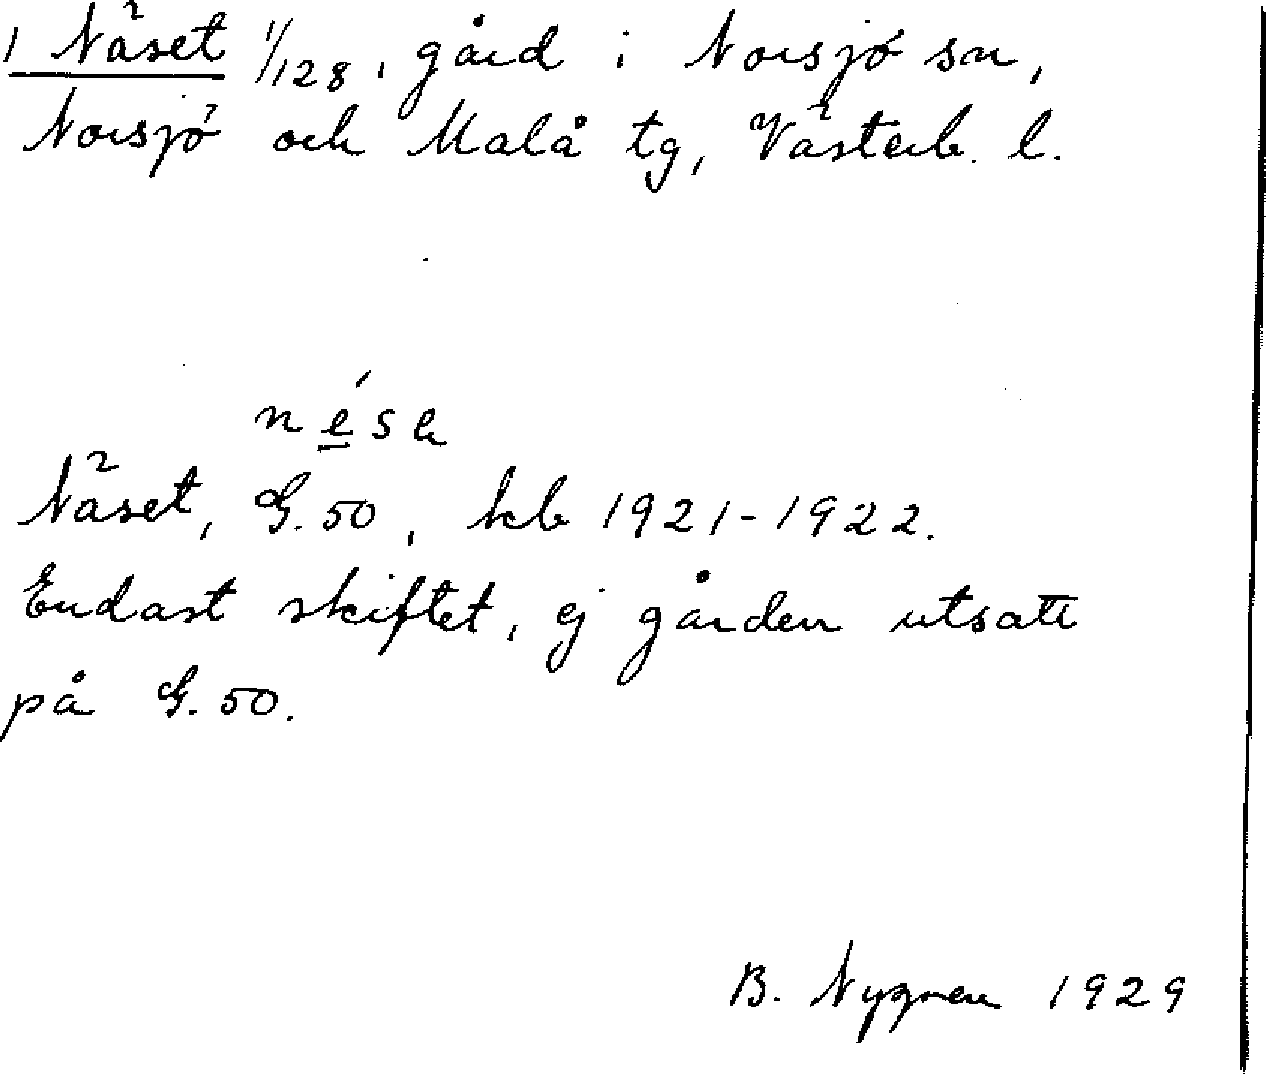 1 Näset 1/128, gård i Norsjö sn,
Norsjö och Malå tg, Västerb. l.
Näset, G. 50, kb 1921-1922.
Endast skiftet, ej gården utsatt
på G. 50.
B. Nygren 1929